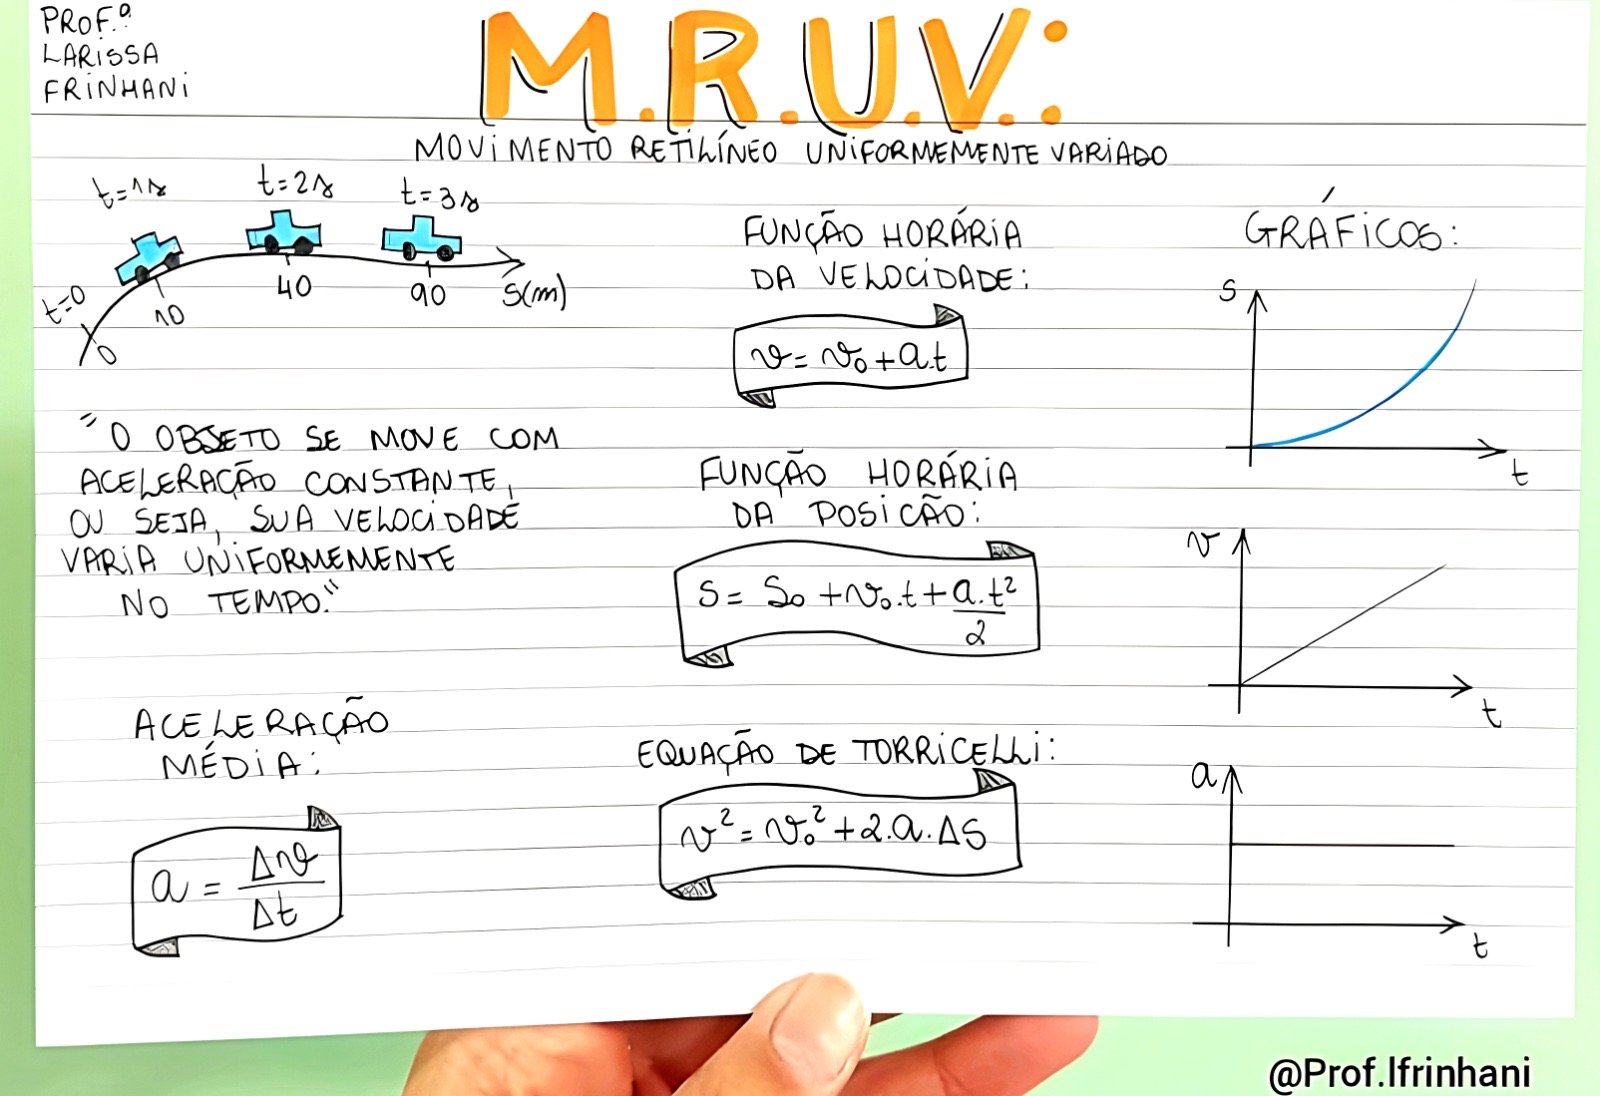 PROF.ª
LARISSA
FRINHANI
M.R.U.V.:
MOVIMENTO RETILÍNEO UNIFORMEMENTE VARIADO
t=1s
t=2s
t=3s
t=0
0
10
40
90
S(m)
"O OBJETO SE MOVE COM
ACELERAÇÃO CONSTANTE,
OU SEJA, SUA VELOCIDADE
VARIA UNIFORMEMENTE
NO TEMPO."
ACELERAÇÃO
MÉDIA:
a = Δv/Δt
FUNÇÃO HORÁRIA
DA VELOCIDADE:
v = v₀ + a.t
FUNÇÃO HORÁRIA
DA POSICÃO:
S = S₀ + v₀.t + a.t²/2
EQUAÇÃO DE TORRICELLI:
v² = v₀² + 2.a.ΔS
GRÁFICOS:
S
t
v
t
a
t
@Prof.lfrinhani